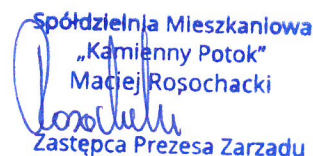 Spółdzielnia Mieszkaniowa
„Kamienny Potok”
Maciej Rosochacki
Zastępca Prezesa Zarządu